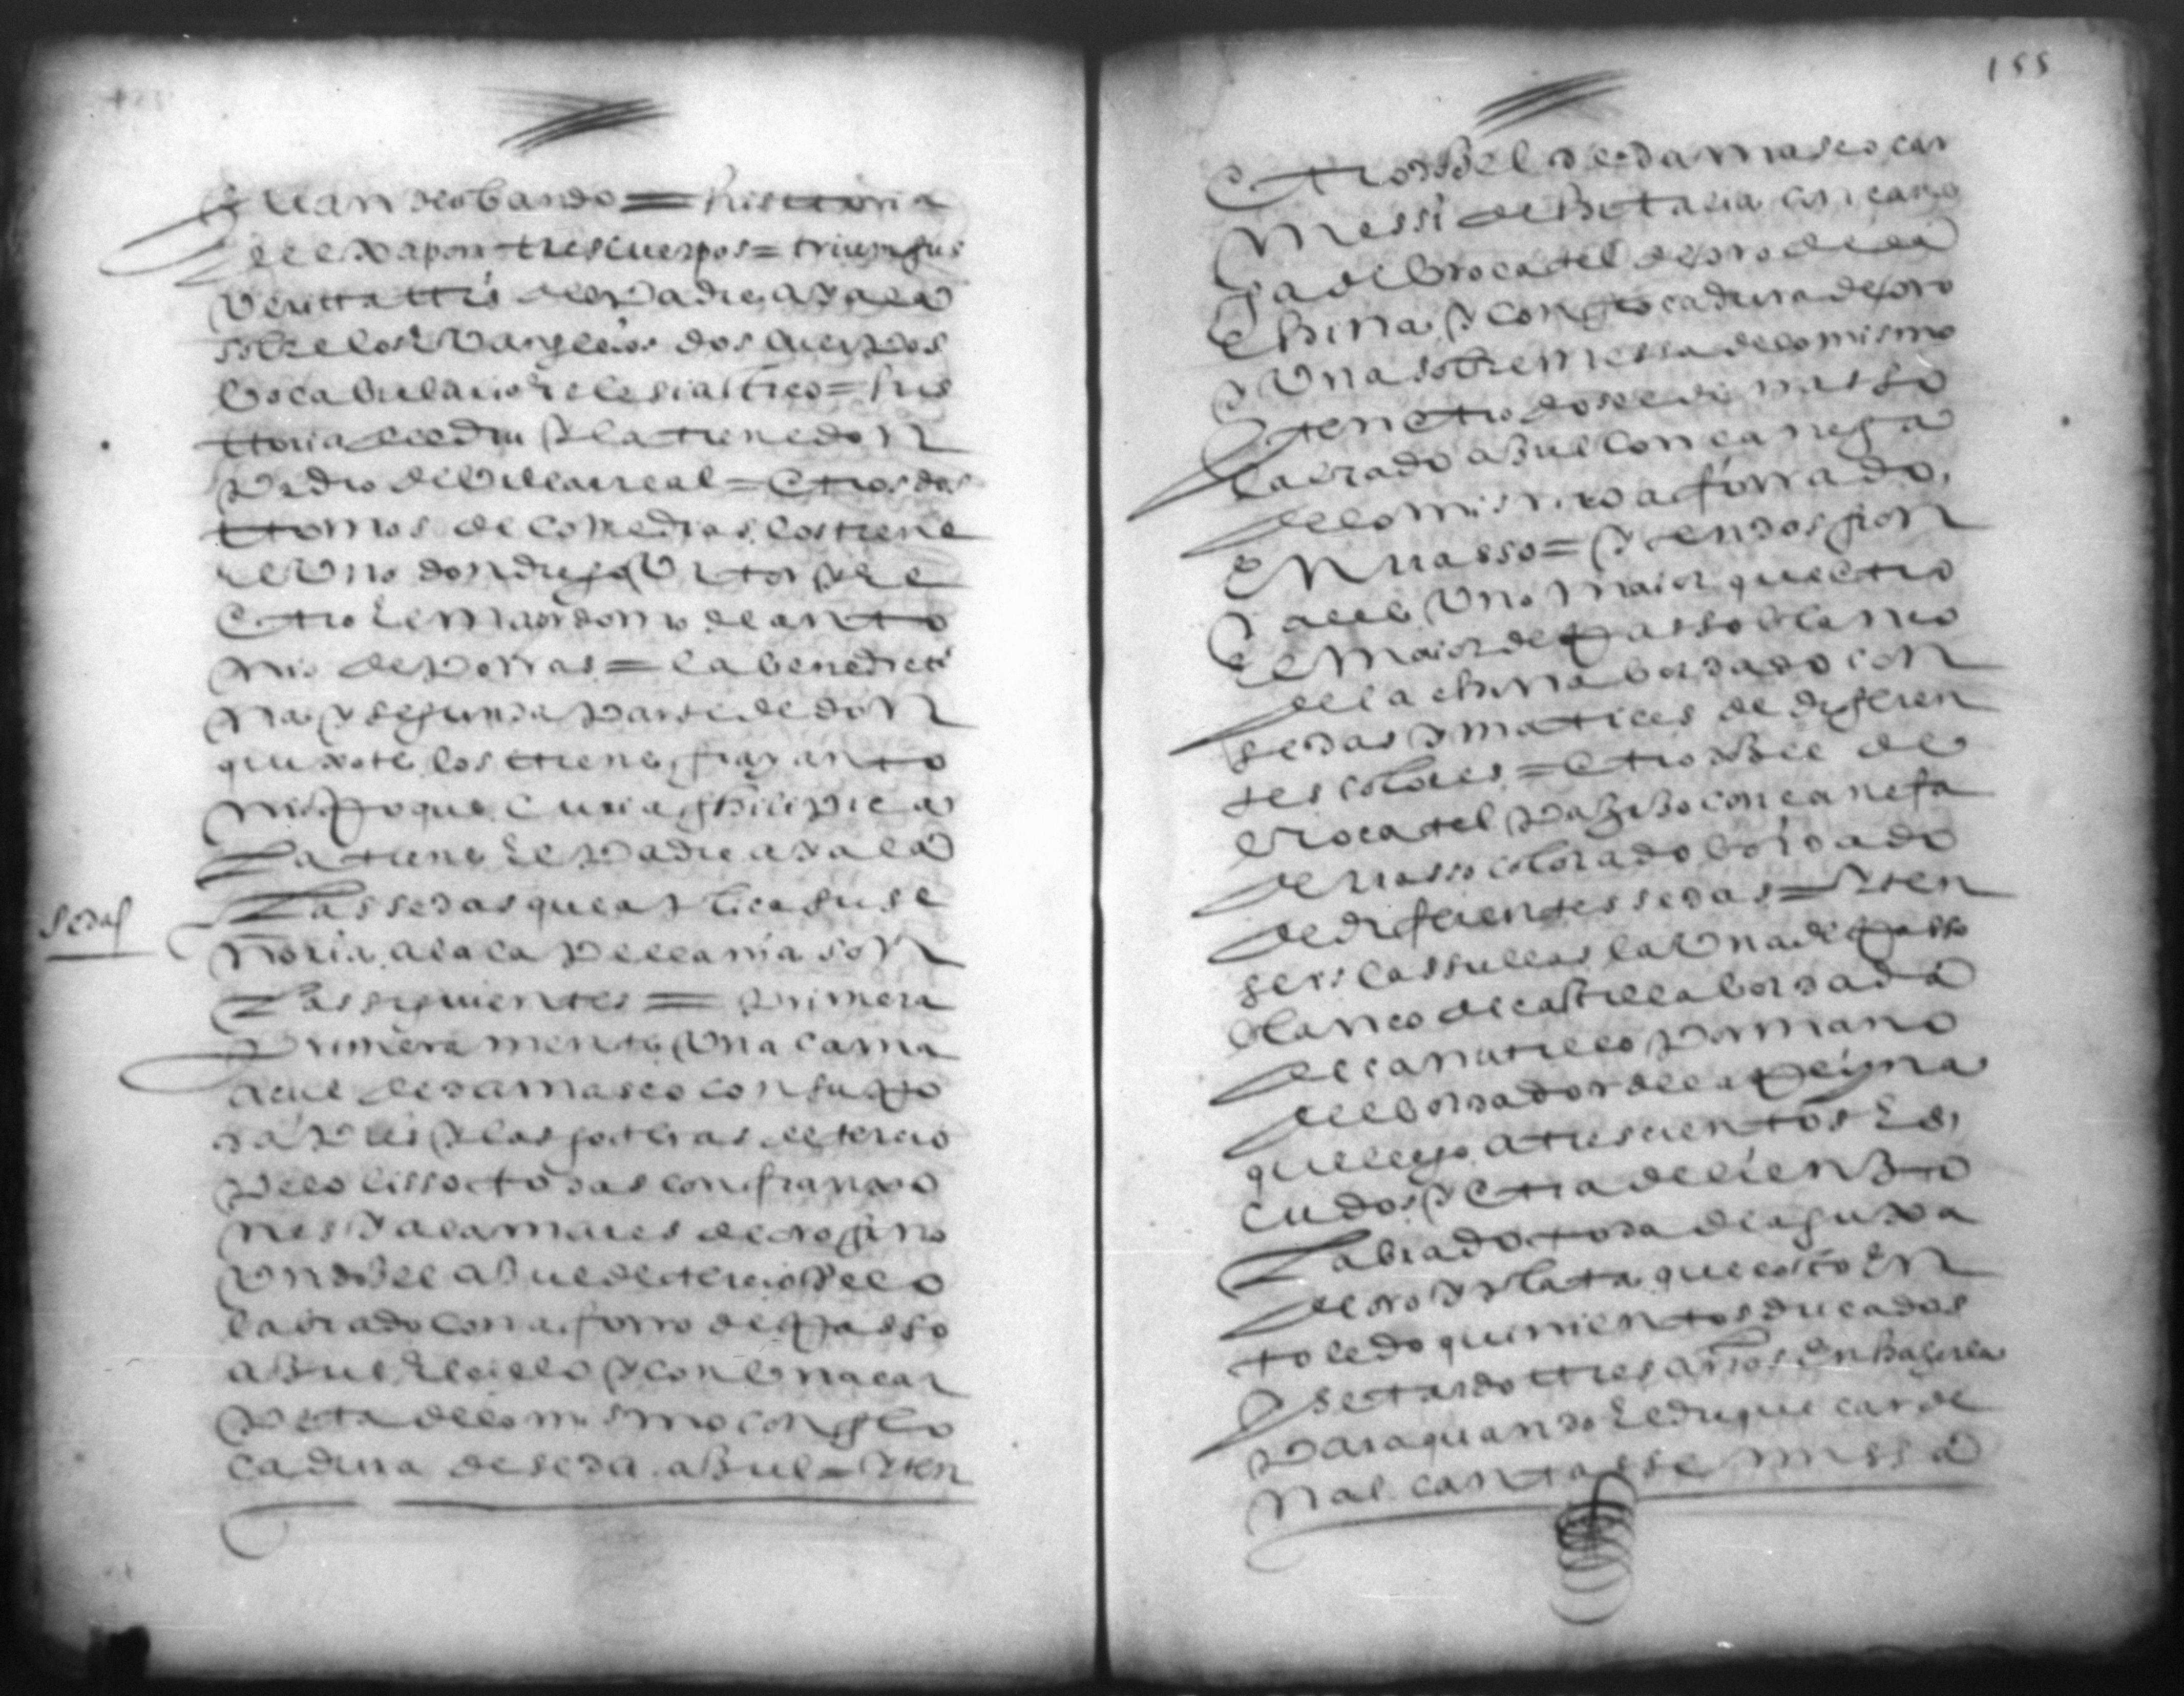 Juan de obando = historia
del xapon tres cuerpos = triumfus
Veritattis del Padre ayala
sobre los Evangelios dos cuerpos
bocabulario Eclesiastico = his
ttoria y la tiene don
Pedro de Villarreal = Otros dos
ttomos de comedias los tiene
el Uno don diego y el
Otro El mayordomo de anto
nio de Porras = la benedicti
na y segunda Parte de don
quixote los ttiene fray anto
nio Roque Curia philipica
la tiene El Padre ayala
sedas
Las sedas que aplica su se
ñoria a la capellania son
Las siguientes = Primera
Primeramente Una cama
açul de damasco con su
y las goteras de tercio
pelo lisso todas con franxo
nes y alamares de oro fino
Un dosel açul de tercio Pelo
labrado con aforro de Rasso
açul El cielo y con Una car
peta de lo mismo con flo
cadura de seda açul = Yten
155
Otro dosel de damasco car
messi de Ytalia con cane
fa de brocatel de oro de la
china y con flocadura de oro
y Una sobremessa de lo mismo
Yten Otro dosel de rasso
labrado açul con canefa
de lo mismo aforrado
En rasso = Yten dos fron
tales Uno maior que Otro
El maior de Rasso blanco
de la china bordado con
sedas y matices de diferen
tes colores = Otro dosel de
brocatel Pagizo con canefa
de rasso colorado bordado
de diferentes sedas = Yten
seis cassullas la Una de Rasso
blanco de castilla bordada
de canutillo Por mano
del bordador de la Reina
que llego a trescientos Es
cudos y Otra de lienzo
Labrado toda de aguxa
de oro y Plata que costo En
toledo quinientos ducados
y se tardo ttres años En haçerla
Para quando El duque carde
nal cantasse missa